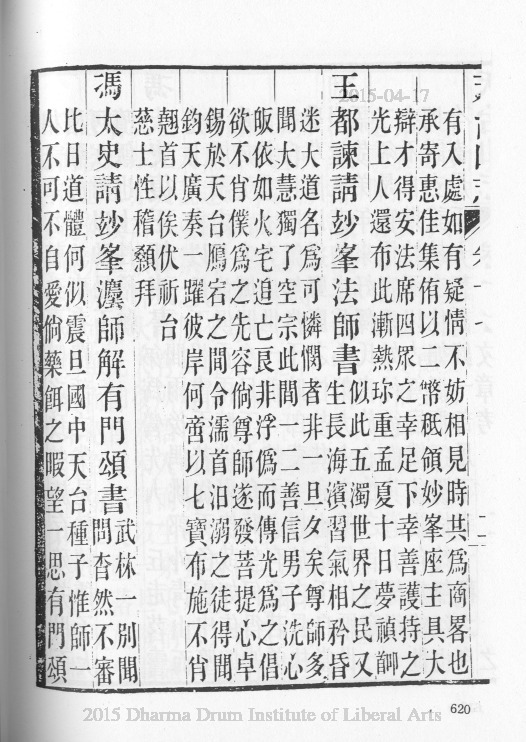 有入處如有疑情不妨相見時共為商畧也
承寄惠佳集侑以二幣秪領妙峯座主具大
辯才得安法席四眾之幸足下幸善護持之
光上人還布此漸熱珍重孟夏十日夢禎䭫
王都諫請玅峯法師書
似此五濁世界之民又
生長海濱習氣相矜昏
迷大道名為可憐憫者非一旦夕矣尊師多
聞大慧獨了空宗此間一二善信男子洗心
皈依如火宅迫亡艮非浮偽而傳光為之倡
欲不肖僕為之先容倘尊師遂發菩提心卓
錫於天台鴈宕之間令濡首汨溺之徒得聞
鈞天廣奏一躍彼岸何啻以七寶布施不肖
翹首以俟伏祈台
慈士性稽顙拜
馮太史請玅峯灋師解有門頌書
武林一別聞
問杳然不審
比日道體何似震旦國中天台種子惟師一
人不可不自愛倘藥餌之暇望一思有門頌
620
2015-04-17
2015 Dharma Drum Institute of Liberal Arts